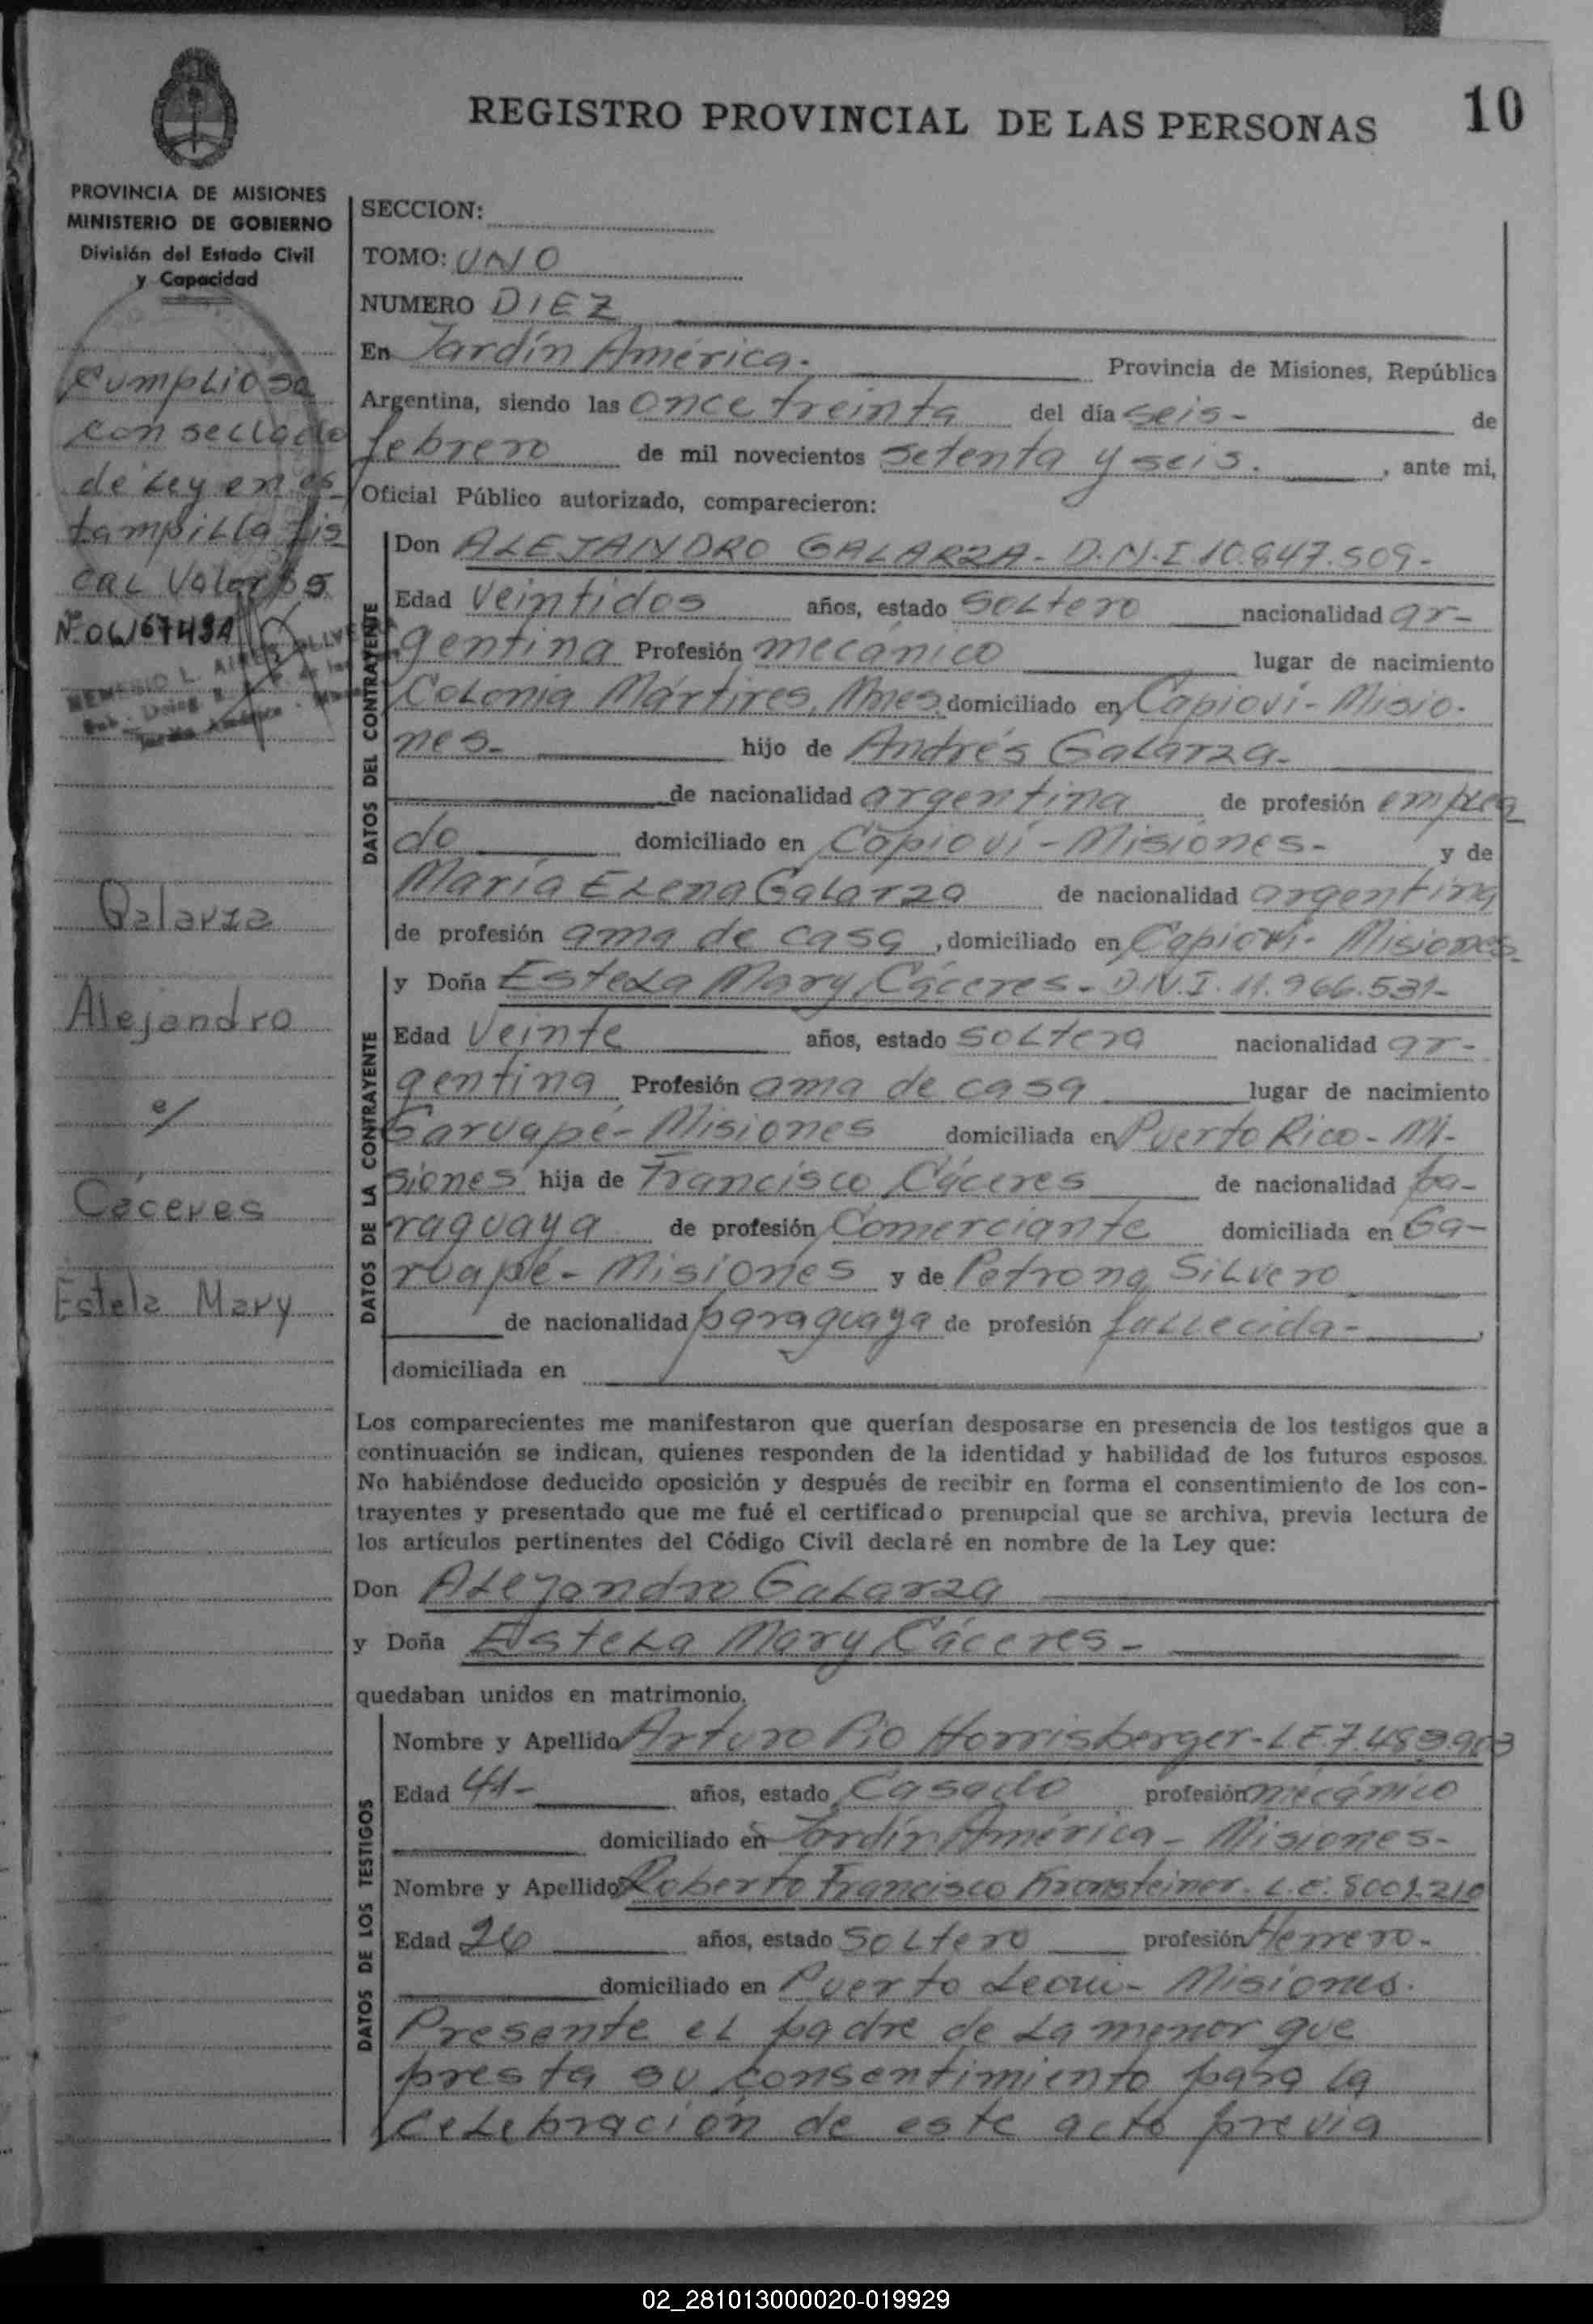 REGISTRO PROVINCIAL DE LAS PERSONAS
10
PROVINCIA DE MISIONES
MINISTERIO DE GOBIERNO
División del Estado Civil
y Capacidad
Cumpliose
con sellado
de Ley en es
tampilla fis
cal Valor $
Nº
Galarza
Alejandro
c/
Cáceres
Estela Mary
SECCION:
TOMO: UNO
NUMERO DIEZ
En Jardín América. Provincia de Misiones, República
Argentina, siendo las once treinta del día seis- de
febrero de mil novecientos setenta y seis. , ante mi,
Oficial Público autorizado, comparecieron:
DATOS DEL CONTRAYENTE
Don ALEJANDRO GALARZA- D.N.I 10.847.509-
Edad Veintidos años, estado soltero nacionalidad ar-
gentina Profesión mecánico lugar de nacimiento
Colonia Mártires, Mnes. domiciliado en Capioví-Misio-
nes- hijo de Andrés Galarza-
de nacionalidad argentina de profesión emplea
do domiciliado en Capioví-Misiones- y de
María Elena Galarza de nacionalidad argentina
de profesión ama de casa , domiciliado en Capioví- Misiones-
DATOS DE LA CONTRAYENTE
y Doña Estela Mary Cáceres- D.N.I. 11.966.531-
Edad Veinte años, estado soltera nacionalidad ar-
gentina Profesión ama de casa lugar de nacimiento
Garuapé-Misiones domiciliada en Puerto Rico-Mi-
siones hija de Francisco Cáceres de nacionalidad pa-
raguaya de profesión Comerciante domiciliada en Ga-
ruapé-Misiones y de Petrona Silvero
de nacionalidad paraguaya de profesión fallecida- ,
domiciliada en
Los comparecientes me manifestaron que querían desposarse en presencia de los testigos que a
continuación se indican, quienes responden de la identidad y habilidad de los futuros esposos.
No habiéndose deducido oposición y después de recibir en forma el consentimiento de los con-
trayentes y presentado que me fué el certificado prenupcial que se archiva, previa lectura de
los artículos pertinentes del Código Civil declaré en nombre de la Ley que:
Don Alejandro Galarza
y Doña Estela Mary Cáceres-
quedaban unidos en matrimonio.
DATOS DE LOS TESTIGOS
Nombre y Apellido Arturo Pío Horrisberger-L.E 7.483.903
Edad 41- años, estado Casado profesión mecánico
domiciliado en Jardín América- Misiones-
Nombre y Apellido Roberto Francisco Kronsteiner- L.E. 8001.210
Edad 26 años, estado soltero profesión Herrero-
domiciliado en Puerto Leoni- Misiones.
Presente el padre de la menor que
presta su consentimiento para la
celebración de este acto previa
02_281013000020-019929